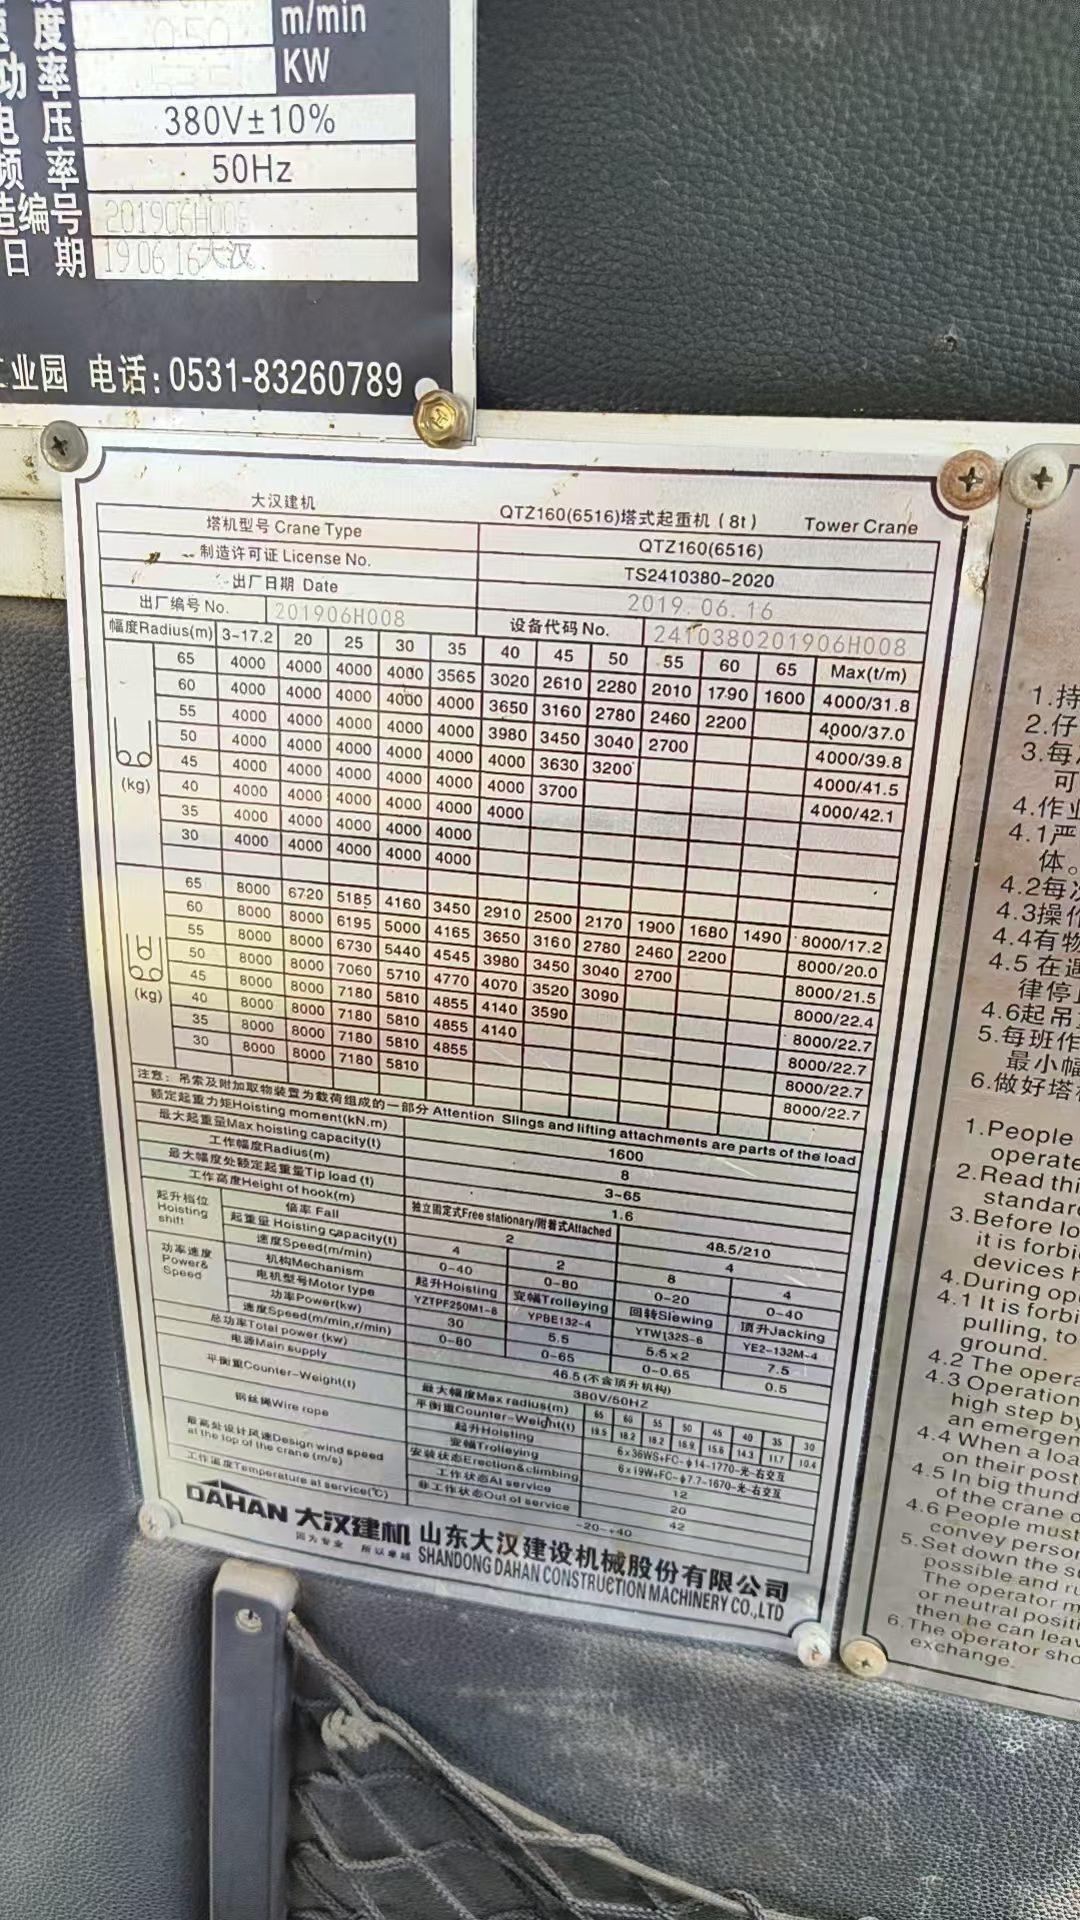 度 m/min
功率 KW
电压 380V±10%
频率 50Hz
造编号 201906H008
日期 19 06 16大汉
工业园 电话:0531-83260789
大汉建机 QTZ160(6516)塔式起重机(8t) Tower Crane
塔机型号 Crane Type QTZ160(6516)
制造许可证 License No. TS2410380-2020
出厂日期 Date 2019.06.16
出厂编号 No. 201906H008 设备代码 No. 2410380201906H008
幅度Radius(m) 3-17.2 20 25 30 35 40 45 50 55 60 65 Max(t/m)
65 4000 4000 4000 4000 3565 3020 2610 2280 2010 1790 1600 4000/31.8
60 4000 4000 4000 4000 4000 3650 3160 2780 2460 2200 4000/37.0
55 4000 4000 4000 4000 4000 3980 3450 3040 2700 4000/39.8
50 4000 4000 4000 4000 4000 4000 3630 3200 4000/41.5
45 4000 4000 4000 4000 4000 4000 3700 4000/42.1
40 4000 4000 4000 4000 4000 4000
35 4000 4000 4000 4000 4000
30 4000 4000 4000 4000 4000
(kg)
65 8000 6720 5185 4160 3450 2910 2500 2170 1900 1680 1490 8000/17.2
60 8000 8000 6195 5000 4165 3650 3160 2780 2460 2200 8000/20.0
55 8000 8000 6730 5440 4545 3980 3450 3040 2700 8000/21.5
50 8000 8000 7060 5710 4770 4070 3520 3090 8000/22.4
45 8000 8000 7180 5810 4855 4140 3590 8000/22.7
40 8000 8000 7180 5810 4855 4140 8000/22.7
35 8000 8000 7180 5810 4855 8000/22.7
30 8000 8000 7180 5810 8000/22.7
(kg)
注意：吊索及附加取物装置为载荷组成的一部分 Attention Slings and lifting attachments are parts of the load
额定起重力矩Hoisting moment(kN.m) 1600
最大起重量Max hoisting capacity(t) 8
工作幅度Radius(m) 3-65
最大幅度处额定起重量Tip load (t) 1.6
工作高度Height of hook(m) 独立固定式Free stationary/附着式Attached 48.5/210
起升档位 Hoisting shift
倍率 Fall 2 4
起重量 Hoisting capacity(t) 4 2 8 4
速度Speed(m/min) 0-40 0-80 0-20 0-40
功率速度 Power& Speed
机构Mechanism 起升Hoisting 变幅Trolleying 回转Slewing 顶升Jacking
电机型号Motor type YZTPF250M1-8 YPBE132-4 YTW132S-6 YE2-132M-4
功率Power(kw) 30 5.5 5.5×2 7.5
速度Speed(m/min,r/min) 0-80 0-65 0-0.65 0.5
总功率Total power (kw) 46.5(不含顶升机构)
电源Main supply 380V/50HZ
平衡重Counter-Weight(t) 最大幅度Max radius(m) 65 60 55 50 45 40 35 30
平衡重Counter-Weight(t) 19.5 18.2 18.2 16.9 15.6 14.3 11.7 10.4
钢丝绳Wire rope 起升Hoisting 6×36WS+FC-φ14-1770-光-右交互
变幅Trolleying 6×19W+FC-φ7.7-1670-光-右交互
最高处设计风速Design wind speed at the top of the crane (m/s) 安装状态Erection&climbing 12
工作状态At service 20
非工作状态Out of service 42
工作温度Temperature at service(℃) -20-+40
DAHAN 大汉建机 山东大汉建设机械股份有限公司
因为专业 所以卓越 SHANDONG DAHAN CONSTRUCTION MACHINERY CO.,LTD
1.持
2.仔
3.每
可
4.作业
4.1严
体。
4.2每次
4.3操作
4.4有物
4.5 在遇
律停止
4.6起吊
5.每班作
最小幅
6.做好塔机
1.People
operate
2.Read thi
standard
3.Before lo
it is forbi
devices h
4.During ope
4.1 It is forbi
pulling, to
ground.
4.2 The opera
4.3 Operation
high step by
an emergen
4.4 When a loa
on their post
4.5 In big thund
of the crane o
4.6 People must
convey person
5.Set down the su
possible and ru
The operator m
or neutral positi
then he can leav
6.The operator sho
exchange.